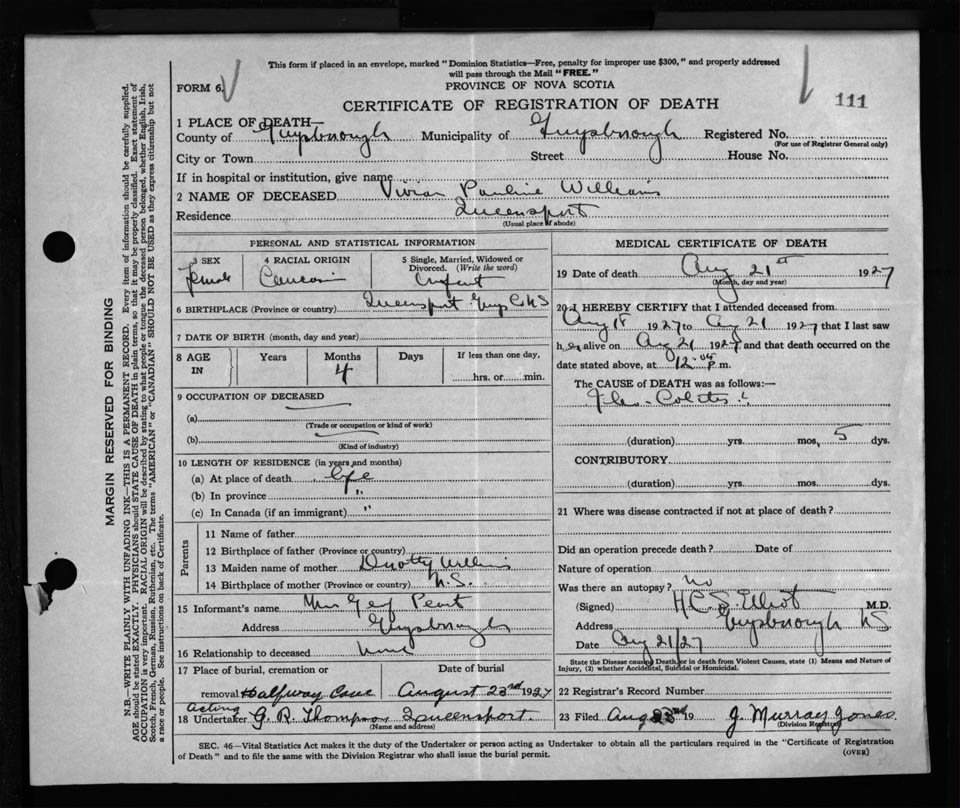 This form if placed in an envelope, marked "Dominion Statistics—Free, penalty for improper use $300," and properly addressed
will pass through the Mail "FREE."
FORM 6.
PROVINCE OF NOVA SCOTIA
CERTIFICATE OF REGISTRATION OF DEATH
111
1 PLACE OF DEATH—
County of Guysborough Municipality of Guysborough Registered No.
(For use of Registrar General only)
City or Town Street House No.
If in hospital or institution, give name
2 NAME OF DECEASED Vivian Pauline Williams
Residence Queensport
(Usual place of abode)
PERSONAL AND STATISTICAL INFORMATION
3 SEX 4 RACIAL ORIGIN 5 Single, Married, Widowed or
Divorced. (Write the word)
Female Infant
6 BIRTHPLACE (Province or country) Queensport Guys Co NS
7 DATE OF BIRTH (month, day and year)
8 AGE IN Years Months Days If less than one day,
4 hrs. or min.
9 OCCUPATION OF DECEASED
(a)
(Trade or occupation or kind of work)
(b)
(Kind of industry)
10 LENGTH OF RESIDENCE (in years and months)
(a) At place of death life
(b) In province "
(c) In Canada (if an immigrant) "
Parents
11 Name of father
12 Birthplace of father (Province or country)
13 Maiden name of mother Dorothy Williams
14 Birthplace of mother (Province or country) N.S.
15 Informant's name Mrs
Address Guysborough
16 Relationship to deceased
17 Place of burial, cremation or Date of burial
removal Halfway Cove August 23rd 1927
Acting
18 Undertaker G. R. Thompson Queensport
(Name and address)
MEDICAL CERTIFICATE OF DEATH
19 Date of death Aug 21st 1927
(Month, day and year)
20 I HEREBY CERTIFY that I attended deceased from
Aug 18 1927 to Aug 21 1927 that I last saw
her alive on Aug 21 1927 and that death occurred on the
date stated above, at 12.05 p.m.
The CAUSE of DEATH was as follows:—
Ileo-Colitis
(duration) yrs. mos, 5 dys.
CONTRIBUTORY
(duration) yrs. mos. dys.
21 Where was disease contracted if not at place of death?
Did an operation precede death? Date of
Nature of operation
Was there an autopsy? no
(Signed) H.C.S. Elliot M.D.
Address Guysborough NS
Date Aug 21/27
State the Disease causing Death, or in death from Violent Causes, state (1) Means and Nature of
Injury, (2) whether Accidental, Suicidal or Homicidal.
22 Registrar's Record Number
23 Filed Aug 23rd 19 J. Murray Jones
(Division Registrar)
SEC. 46—Vital Statistics Act makes it the duty of the Undertaker or person acting as Undertaker to obtain all the particulars required in the "Certificate of Registration
of Death" and to file the same with the Division Registrar who shall issue the burial permit.
(OVER)
MARGIN RESERVED FOR BINDING
N.B.—WRITE PLAINLY WITH UNFADING INK—THIS IS A PERMANENT RECORD. Every item of information should be carefully supplied.
AGE should be stated EXACTLY. PHYSICIANS should STATE CAUSE OF DEATH in plain terms, so that it may be properly classified. Exact statement of
OCCUPATION is very important. RACIAL ORIGIN will be described by stating to what people or tongue the deceased person belonged, whether English, Irish,
Scotch, French, German, Russian, Ruthenian, etc. The terms "AMERICAN" or "CANADIAN" SHOULD NOT BE USED as they express citizenship but not
a race or people. See instructions on back of Certificate.